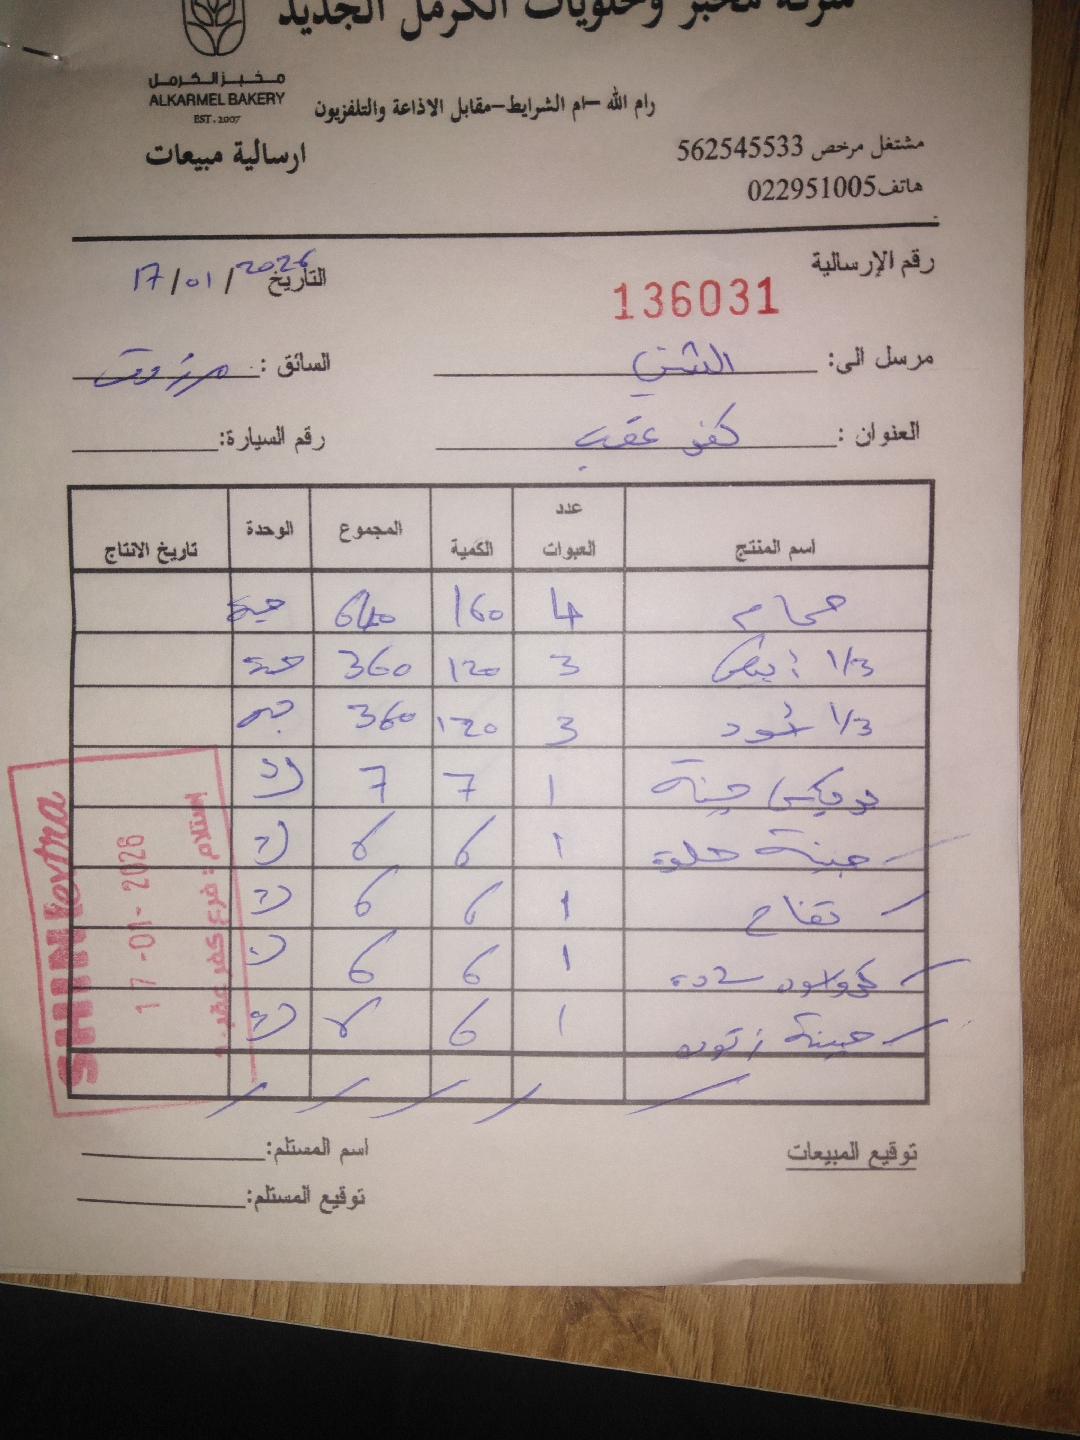 شركة مخبز وحلويات الكرمل الجديد
مخبز الكرمل
ALKARMEL BAKERY
EST. 2007
رام الله –ام الشرايط–مقابل الاذاعة والتلفزيون
ارسالية مبيعات
مشتغل مرخص 562545533
هاتف022951005
رقم الإرسالية
136031
التاريخ 17/01/2026
مرسل الى: الشني
السائق :
العنوان : كفر عقب
رقم السيارة:
اسم المنتج عدد العبوات الكمية المجموع الوحدة تاريخ الانتاج
حمام 4 160 640 حبة
1/3 أبيض 3 120 360 حبة
1/3 أسود 3 120 360 حبة
جبنة 1 7 7
جبنة حلوة 1 6 6
تفاح 1 6 6
سادة 1 6 6
جبنة زتون 1 6 6
SHINI extra
17-01-2026
إستلام : فرع كفر عقب
توقيع المبيعات
اسم المستلم:
توقيع المستلم: